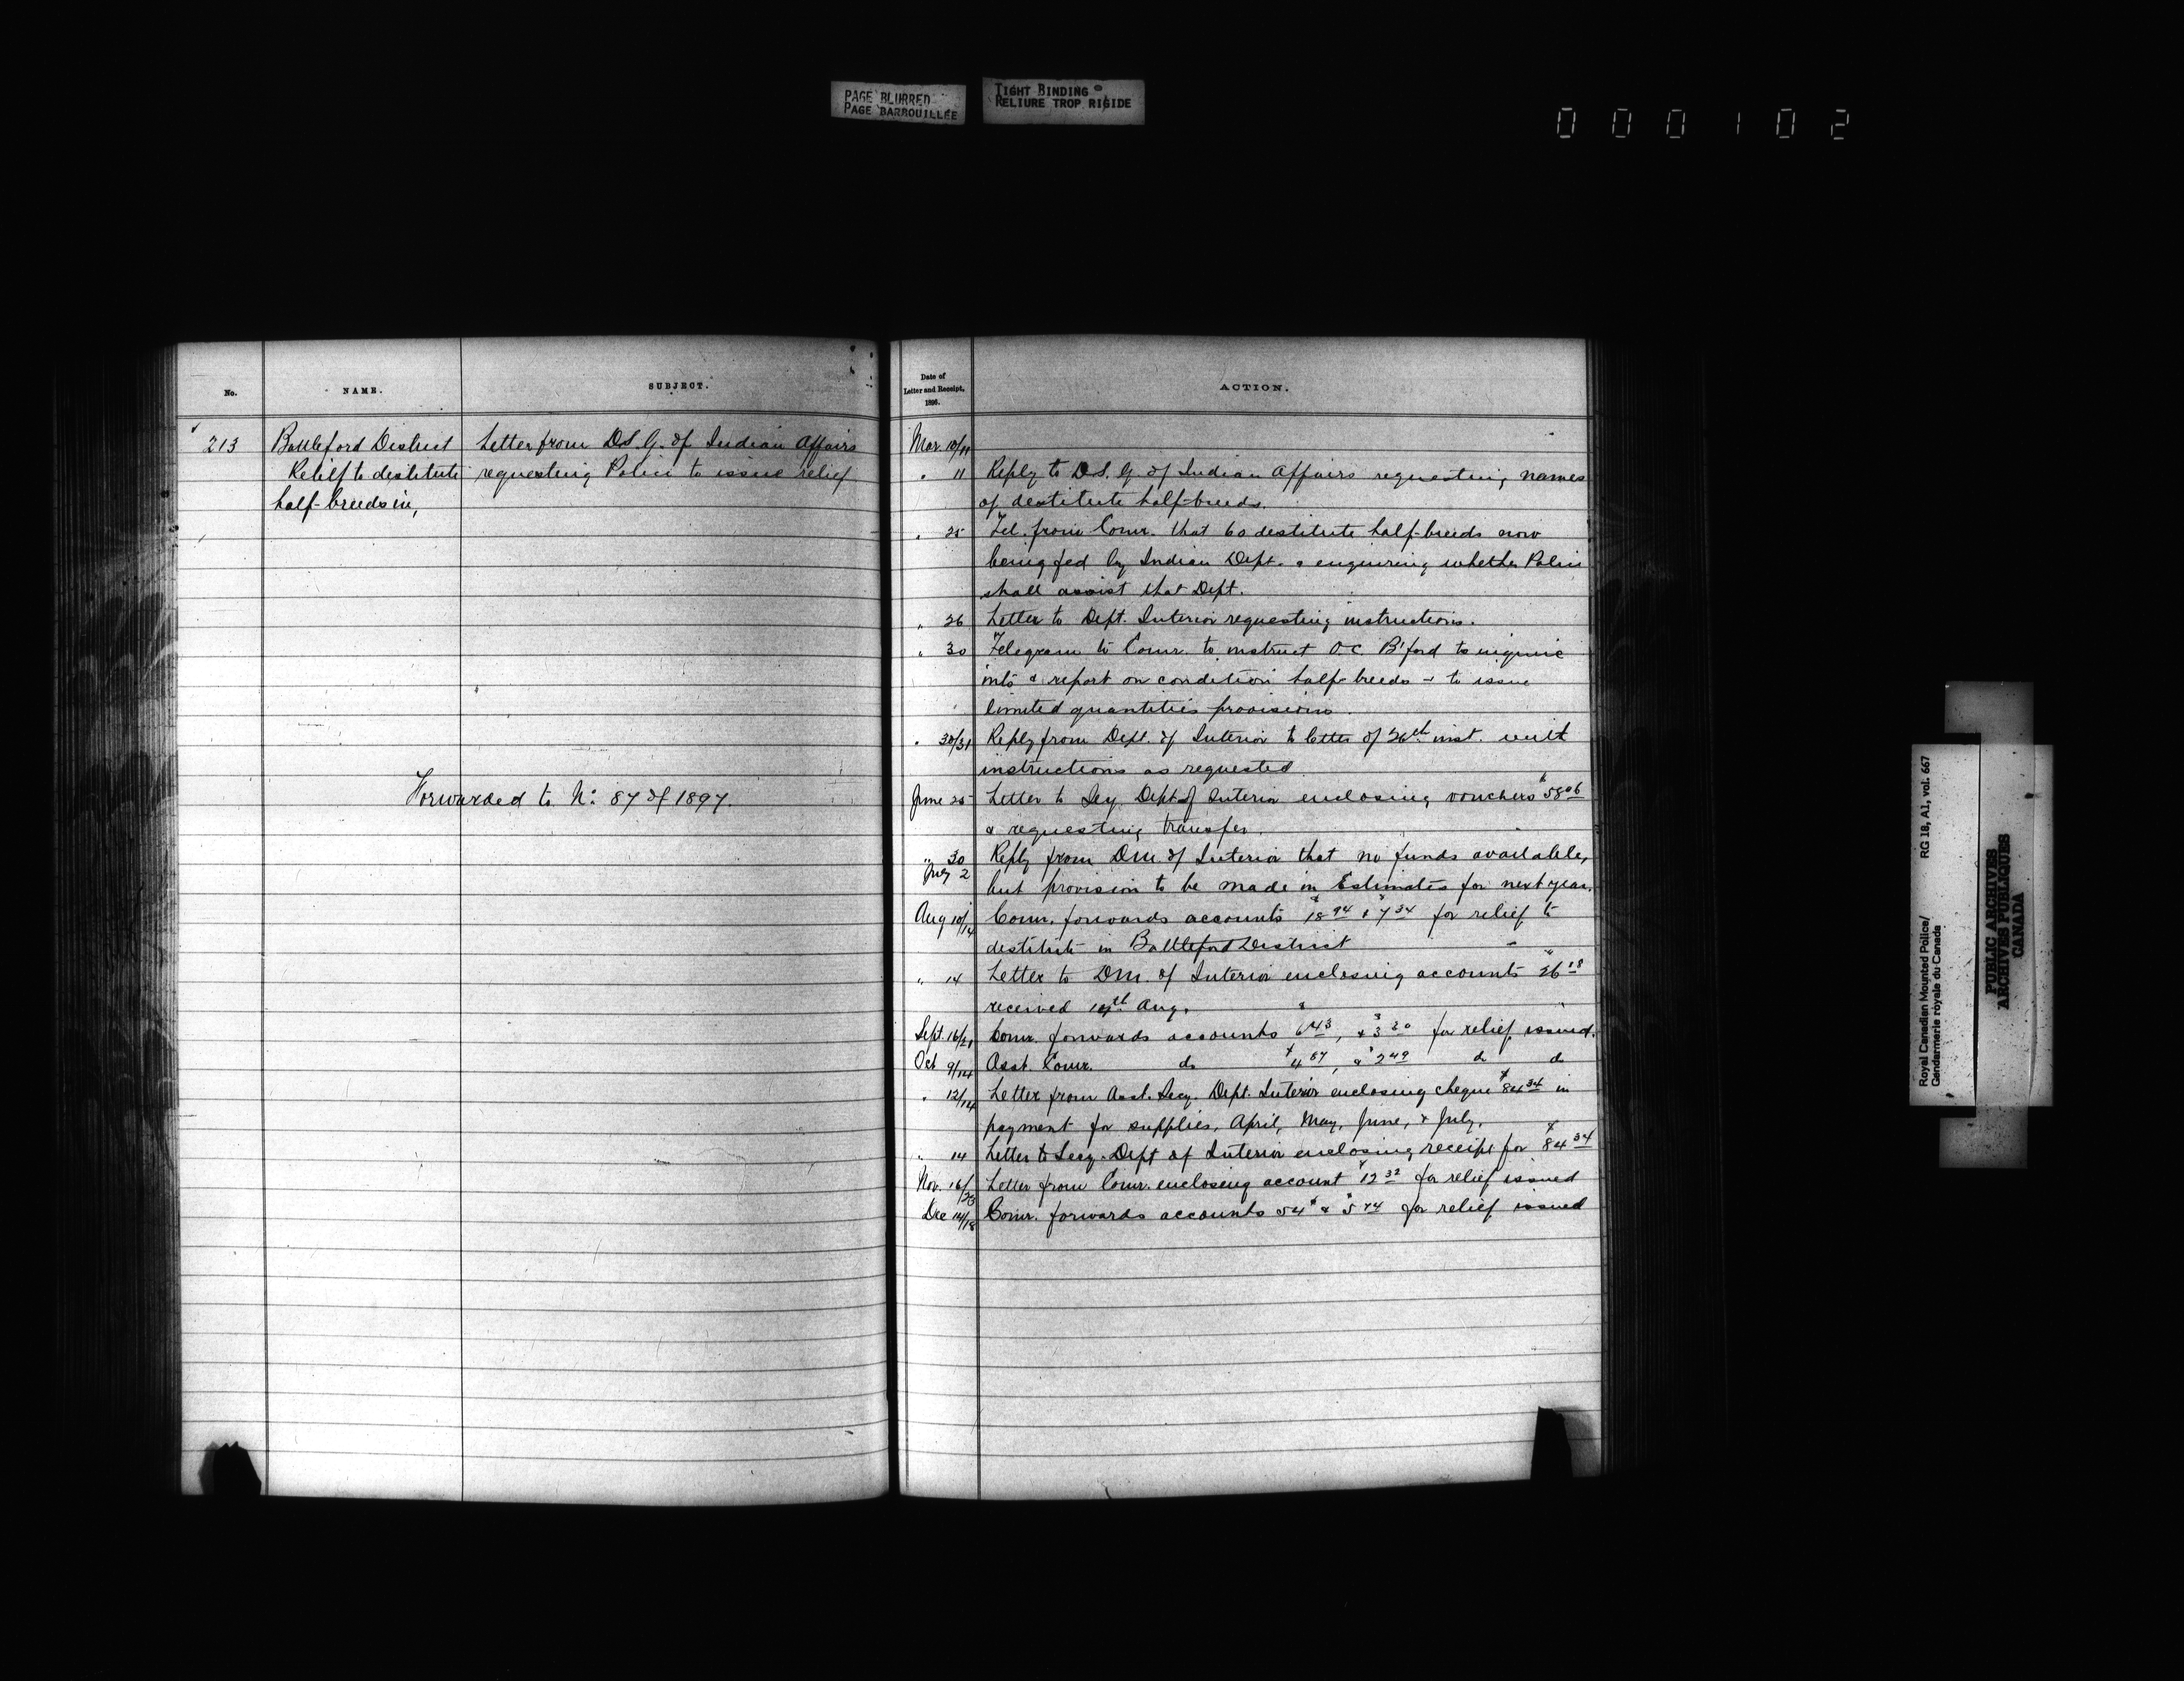 PAGE BLURRED
PAGE BARROUILLÉE
TIGHT BINDING
RELIURE TROP RIGIDE
000102
No.
NAME.
SUBJECT.
213
Battleford District
Relief to destitute
half-breeds in,
Letter from D.S.G. of Indian Affairs
requesting Police to issue relief
Forwarded to No. 87 of 1897.
Date of
Letter and Receipt,
1896.
ACTION.
Mar. 10/11
" 11 Reply to D.S.G. of Indian Affairs requesting names
of destitute half-breeds.
" 25 Tel. from Comr. that 60 destitute half-breeds now
being fed by Indian Dept. & enquiring whether Police
shall assist that Dept.
" 26 Letter to Dept. Interior requesting instructions.
" 30 Telegram to Comr. to instruct O.C. B'ford to inquire
into & report on condition half-breeds & to issue
limited quantities provisions.
" 30/31 Reply from Dept. of Interior to letter of 26th inst. with
instructions as requested
June 25 Letter to Secy. Dept. of Interior enclosing vouchers $58.06
& requesting transfer.
" 30
July 2 Reply from D.M. of Interior that no funds available,
but provision to be made in Estimates for next year.
Aug 10/14 Comr. forwards accounts $18.94 & $7.34 for relief to
destitute in Battleford District
" 14 Letter to D.M. of Interior enclosing accounts $26.28
received 14th Aug.
Sept. 16/21 Comr. forwards accounts $6.43, & $3.20 for relief issued.
Oct 9/14 Asst. Comr. do $4.67, & $2.49 do do
" 12/14 Letter from Asst. Secy. Dept. Interior enclosing cheque $84.34 in
payment for supplies, April, May, June, & July.
" 14 Letter to Secy. Dept of Interior enclosing receipt for $84.34
Nov. 16/23 Letter from Comr. enclosing account $12.32 for relief issued
Dec 14/18 Comr. forwards accounts 54¢ & $5.44 for relief issued
Royal Canadian Mounted Police/
Gendarmerie royale du Canada
RG 18, A1, vol. 667
PUBLIC ARCHIVES
ARCHIVES PUBLIQUES
CANADA